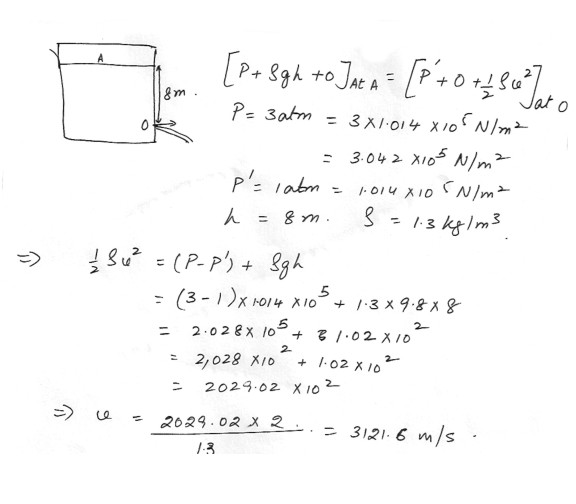 A
8m.
O
[P + ρgh + 0]At A = [P' + 0 + ½ρu²]at O
P = 3atm = 3 X 1.014 X 10⁵ N/m²
= 3.042 X10⁵ N/m²
P' = 1atm = 1.014 X 10⁵ N/m²
h = 8 m. ρ = 1.3 kg/m³.
⇒ ½ρu² = (P-P') + ρgh
= (3-1) X 1.014 X10⁵ + 1.3 X 9.8 X 8
= 2.028 X 10⁵ + 1.02 X 10²
= 2,028 X10² + 1.02 X 10²
= 2029.02 X 10²
⇒ u = 2029.02 X 2 / 1.3 = 3121.6 m/s.